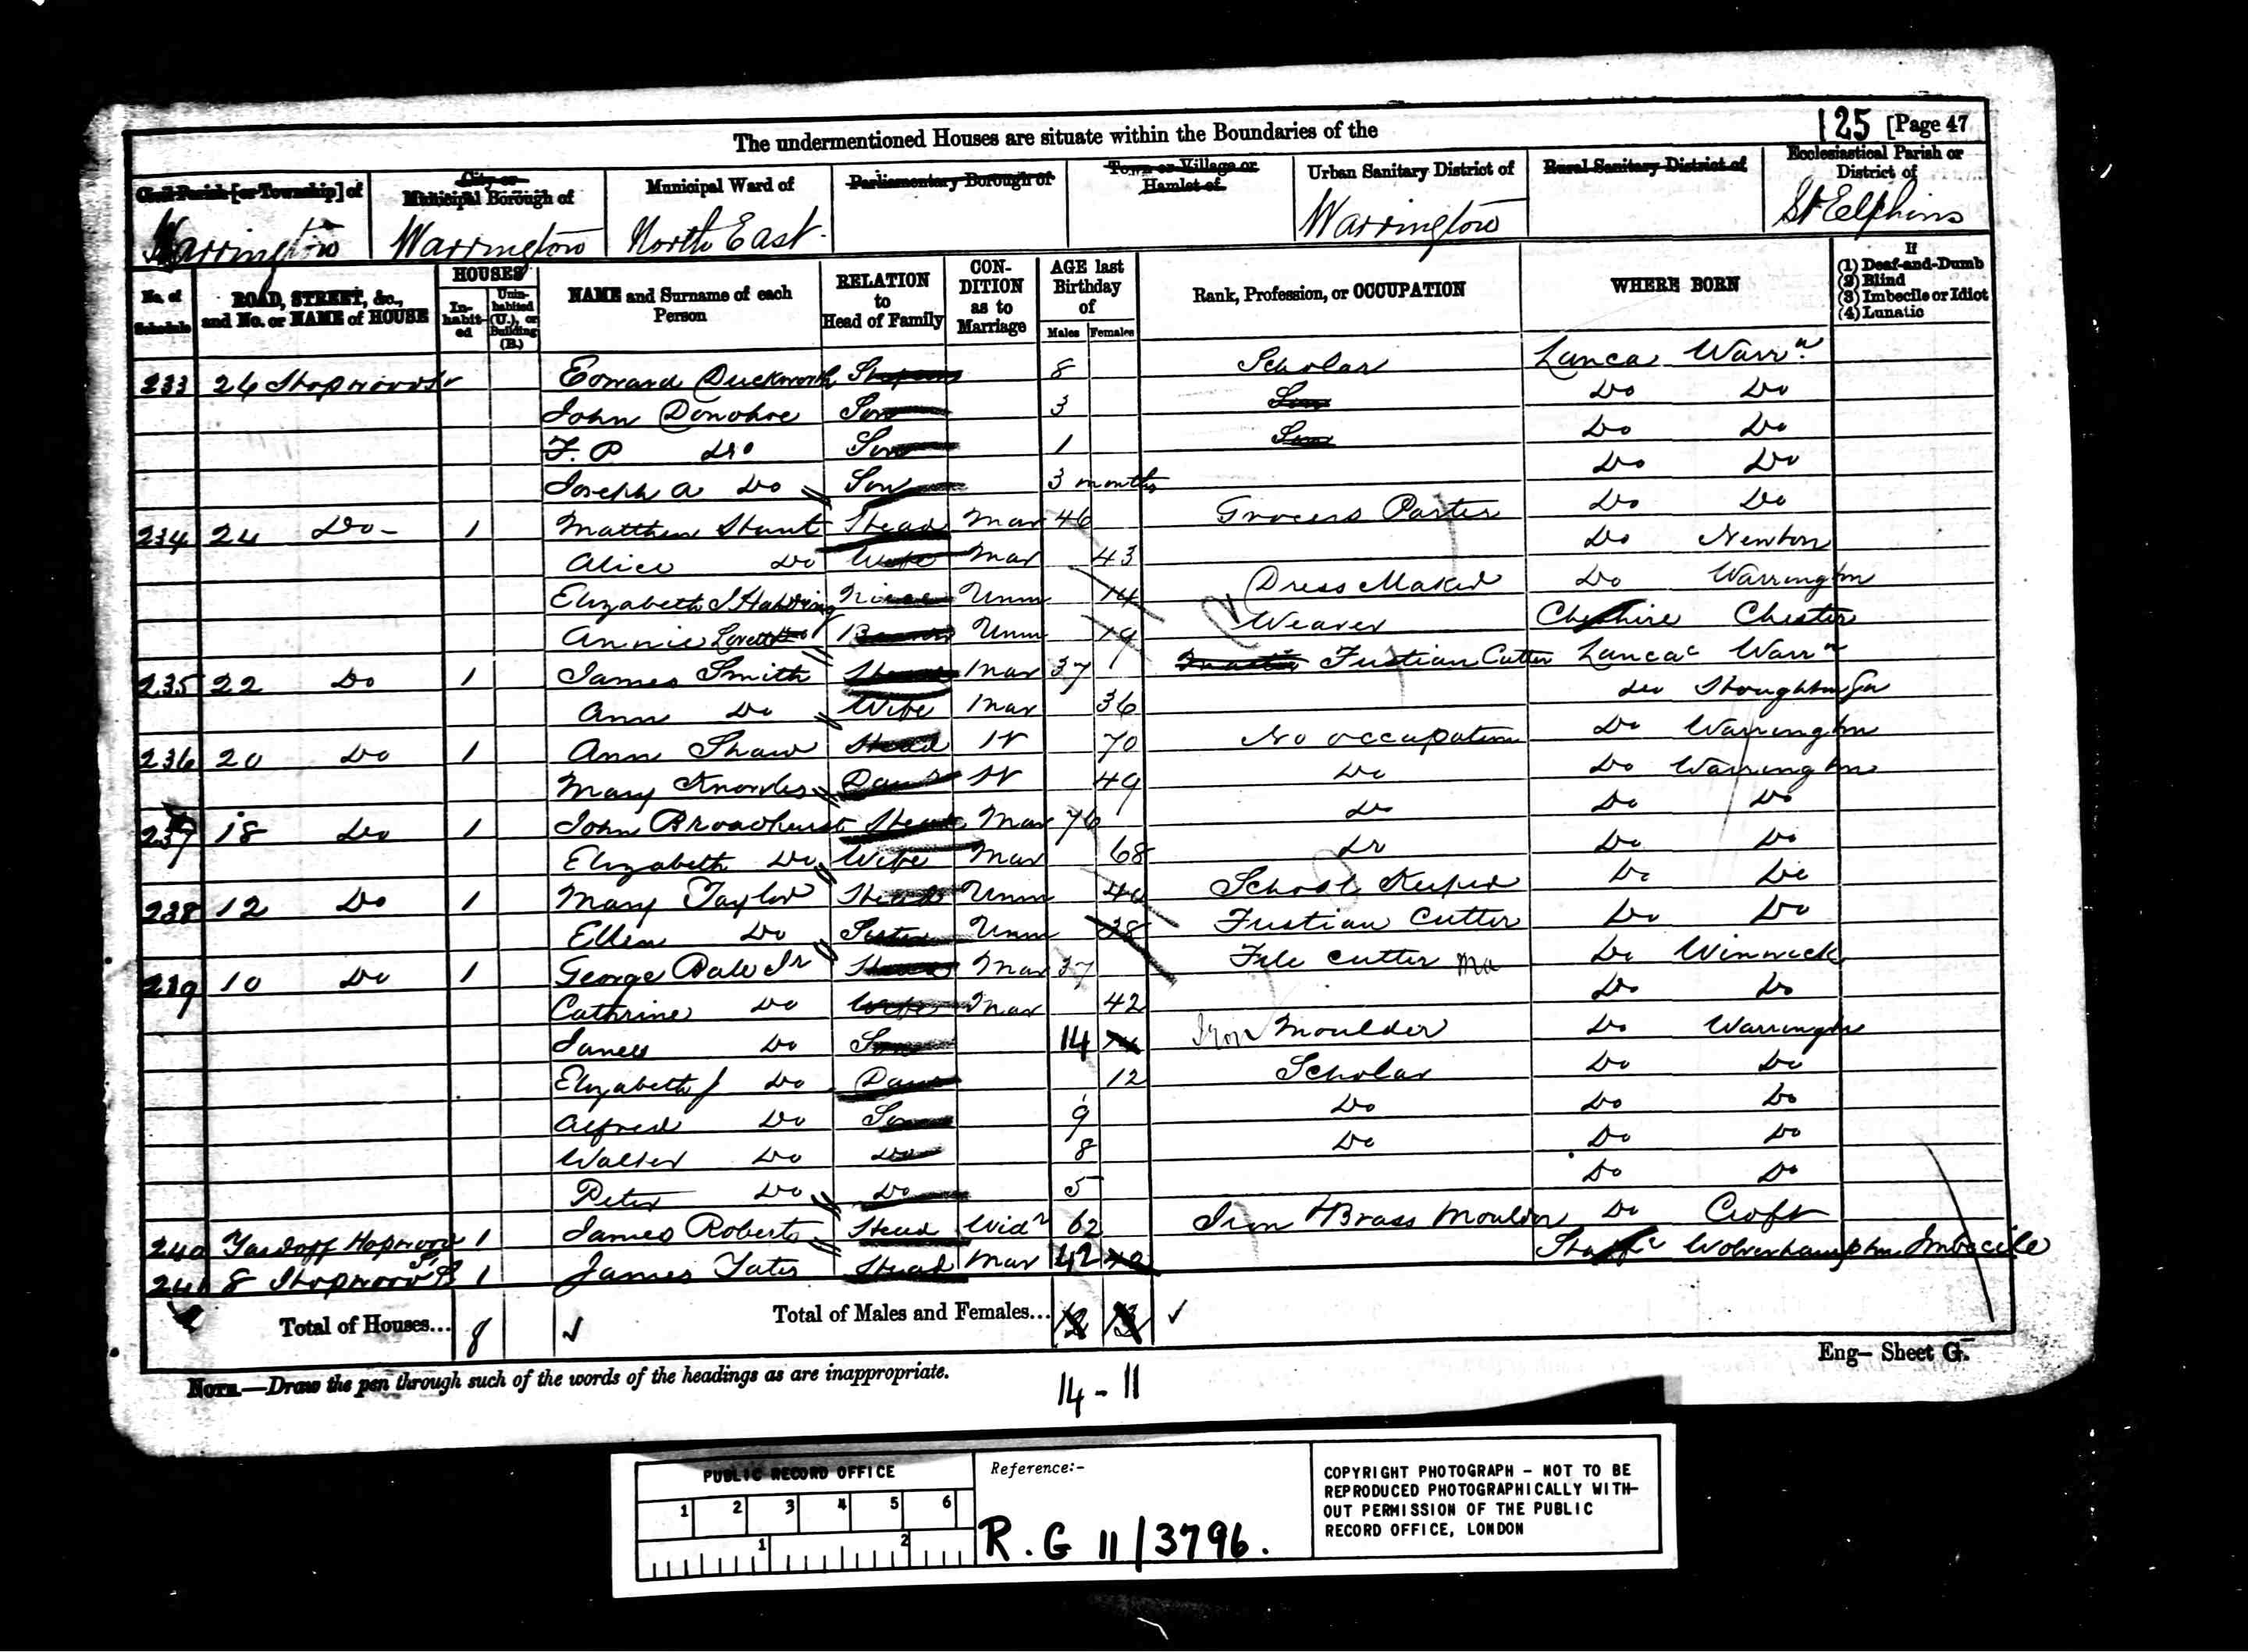 The undermentioned Houses are situate within the Boundaries of the
125 [Page 47
Civil Parish [or Township] of
City or Municipal Borough of
Municipal Ward of
Parliamentary Borough of
Town or Village or Hamlet of
Urban Sanitary District of
Rural Sanitary District of
Ecclesiastical Parish or District of
Warrington Warrington North East Warrington St Elphins
No. of Schedule
ROAD, STREET, &c., and No. or NAME of HOUSE
HOUSES
In-habit-ed
Unin-habited (U.), or Building (B.)
NAME and Surname of each Person
RELATION to Head of Family
CON-DITION as to Marriage
AGE last Birthday of
Males Females
Rank, Profession, or OCCUPATION
WHERE BORN
If
(1) Deaf-and-Dumb
(2) Blind
(3) Imbecile or Idiot
(4) Lunatic
233 26 Hopwood St Edward Duckworth 8 Scholar Lanca Warrn
John Donohoe Son 3 Do Do
F. P Do Son 1 Do Do
Joseph A Do Son 3 months Do Do
234 24 Do 1 Matthew Hunt Head Mar 46 Grocers Porter Do Do
Alice Do Wife Mar 43 Do Newton
Elizabeth J Niece Unm 14 Dress Maker Do Warrington
Annie Unm 19 Weaver Cheshire Chester
235 22 Do 1 James Smith Head Mar 37 Fustian Cutter Lancac Warrn
Ann Do Wife Mar 36 Do
236 20 Do 1 Ann Shaw Head W 70 No occupation Do Warrington
Mary Knowles Daur W 49 Do Do Warrington
237 18 Do 1 John Broadhurst Head Mar 76 Do Do Do
Elizabeth Do Wife Mar 68 Do Do Do
238 12 Do 1 Mary Taylor Head Unm School Keeper Do Do
Ellen Do Sister Unm 28 Fustian Cutter Do Do
239 10 Do 1 George Dale Jr Head Mar 37 File Cutter Do Winwick
Cathrine Do Wife Mar 42 Do Do
James Do Son 14 Iron Moulder Do Warrington
Elizabeth J Do Daur 12 Scholar Do Do
Alfred Do Son 9 Do Do Do
Walter Do Do 8 Do Do Do
Peter Do Do 5 Do Do
240 Yard off Hopwood St 1 James Roberts Head Widr 62 Iron & Brass Moulder Do Croft
241 8 Hopwood St 1 James Yates Head Mar 42 Staffc Wolverhampton Imbecile
Total of Houses... 8
Total of Males and Females... 12 13
NOTE.—Draw the pen through such of the words of the headings as are inappropriate.
14 - 11
Eng— Sheet G.
PUBLIC RECORD OFFICE
1 2 3 4 5 6
1 2
Reference:-
R.G 11/3796.
COPYRIGHT PHOTOGRAPH - NOT TO BE
REPRODUCED PHOTOGRAPHICALLY WITH-
OUT PERMISSION OF THE PUBLIC
RECORD OFFICE, LONDON